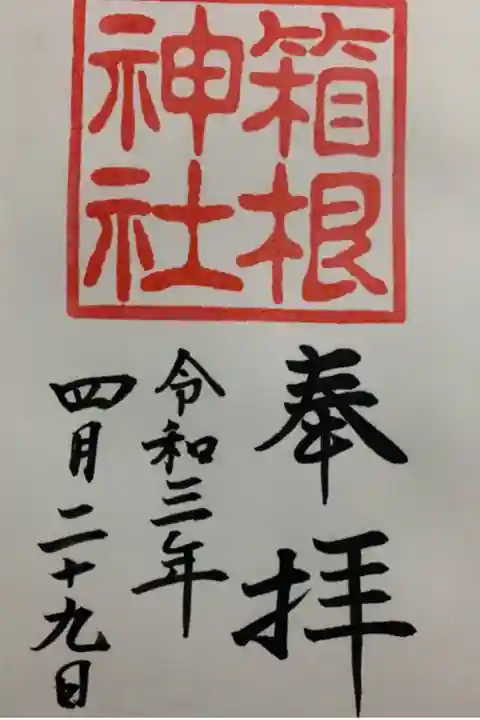 箱根
神社
奉拝
令和三年
四月二十九日